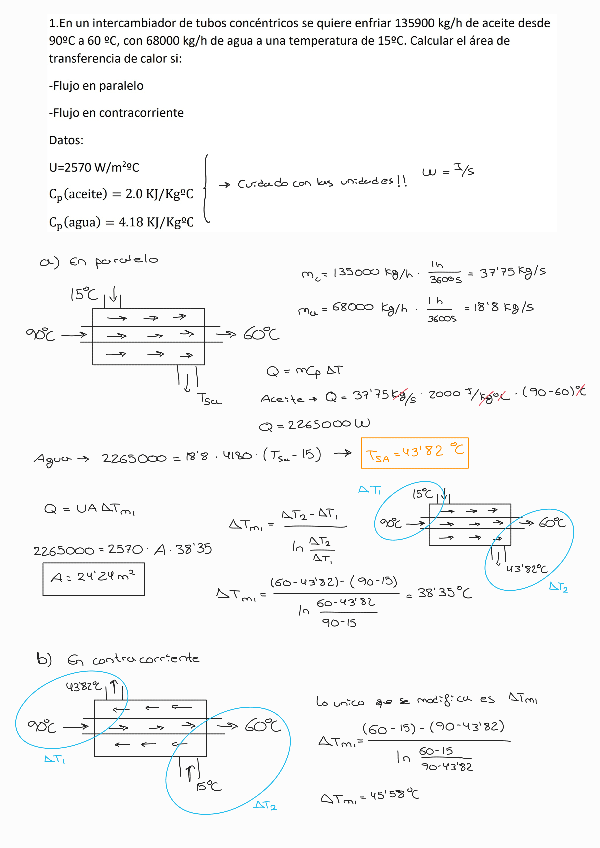 1.En un intercambiador de tubos concéntricos se quiere enfriar 135900 kg/h de aceite desde
90ºC a 60 ºC, con 68000 kg/h de agua a una temperatura de 15ºC. Calcular el área de
transferencia de calor si:
-Flujo en paralelo
-Flujo en contracorriente
Datos:
U=2570 W/m²ºC
Cp(aceite) = 2.0 KJ/KgºC
Cp(agua) = 4.18 KJ/KgºC
→ Cuidado con las unidades!! W = J/s
a) En paralelo
mc = 135000 Kg/h · 1h/3600s = 37'75 Kg/s
ma = 68000 Kg/h · 1h/3600s = 18'8 Kg/s
15ºC
90ºC
60ºC
Tsa
Q = mCp ΔT
Aceite → Q = 37'75 Kg/s · 2000 J/KgºC · (90-60)ºC
Q = 2265000 W
Agua → 2265000 = 18'8 · 4180 · (Tsa - 15) → TSA = 43'82 ºC
Q = UA ΔTml
2265000 = 2570 · A · 38'35
A = 24'24 m²
ΔTml = ΔT2 - ΔT1 / ln ΔT2/ΔT1
ΔTml = (60-43'82) - (90-15) / ln 60-43'82/90-15 = 38'35ºC
ΔT1
15ºC
90ºC
60ºC
43'82ºC
ΔT2
b) En contracorriente
43'82ºC
90ºC
60ºC
ΔT1
15ºC
ΔT2
Lo unico que se modifica es ΔTml
ΔTml = (60-15) - (90-43'82) / ln 60-15/90-43'82
ΔTml = 45'58ºC